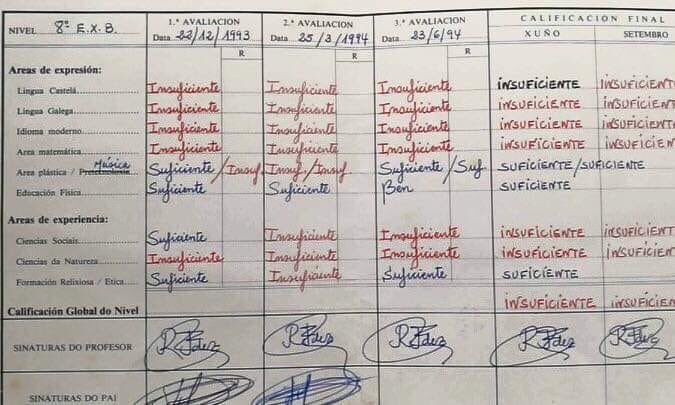 1.ª AVALIACION 2.ª AVALIACION 3.ª AVALIACION CALIFICACIÓN FINAL
NIVEL 8º E.X.B. Data 22/12/1993 Data 25/3/1994 Data 23/6/94 XUÑO SETEMBRO
R R R
Areas de expresión:
Lingua Castelá Insuficiente Insuficiente Insuficiente INSUFICIENTE INSUFICIENT
Lingua Galega Insuficiente Insuficiente Insuficiente INSUFICIENTE INSUFICIENTE
Idioma moderno Insuficiente Insuficiente Insuficiente INSUFICIENTE INSUFICIENTE
Area matemática Insuficiente Insuficiente Insuficiente INSUFICIENTE INSUFICIENTE
Música
Area plástica / Pretecnoloxía Suficiente / Insuf. Insuf. / Insuf. Suficiente / Suf. SUFICIENTE/SUFICIENTE
Educación Física Suficiente Suficiente Ben SUFICIENTE
Areas de experiencia:
Ciencias Sociais Suficiente Insuficiente Insuficiente INSUFICIENTE INSUFICIENTE
Ciencias da Natureza Insuficiente Insuficiente Insuficiente INSUFICIENTE INSUFICIENTE
Formación Relixiosa / Etica Suficiente Insuficiente Suficiente SUFICIENTE
Calificación Global do Nivel INSUFICIENTE INSUFICIEN
SINATURAS DO PROFESOR
SINATURAS DO PAI